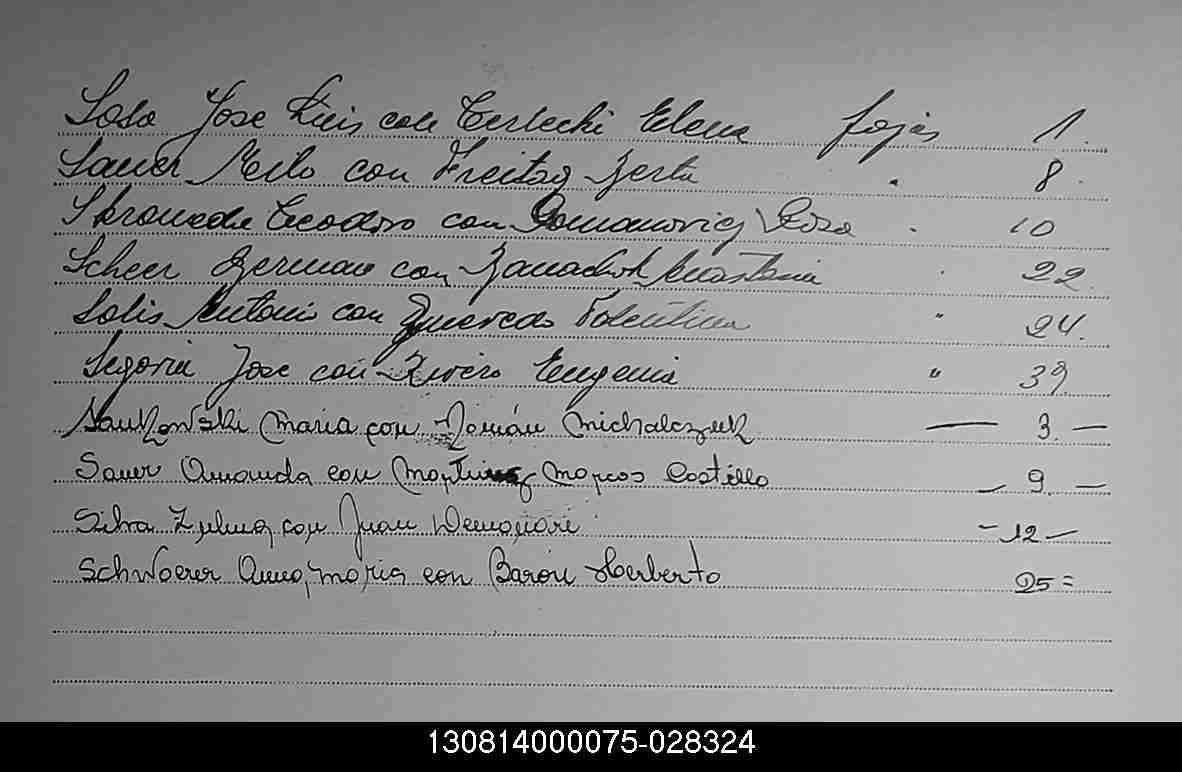 Sosa Jose Luis con Terlecki Elena fojas 1.
Sauer Meilo con Freitag Berta " 8.
Teodoro con Romanovicz Rosa " 10
Scheer German con Anastasia " 22.
Solis Antonio con Valentina " 24.
Segovia Jose con Rivero Eugenia " 39
Sankowski Maria con Román Michalczuk — 3. —
Sauer Amanda con Martinez Marcos Castillo — 9. —
Silva Zulma con Juan - 12 -
Schwoerer Anna Maria con Baron Herberto 25 =
130814000075-028324